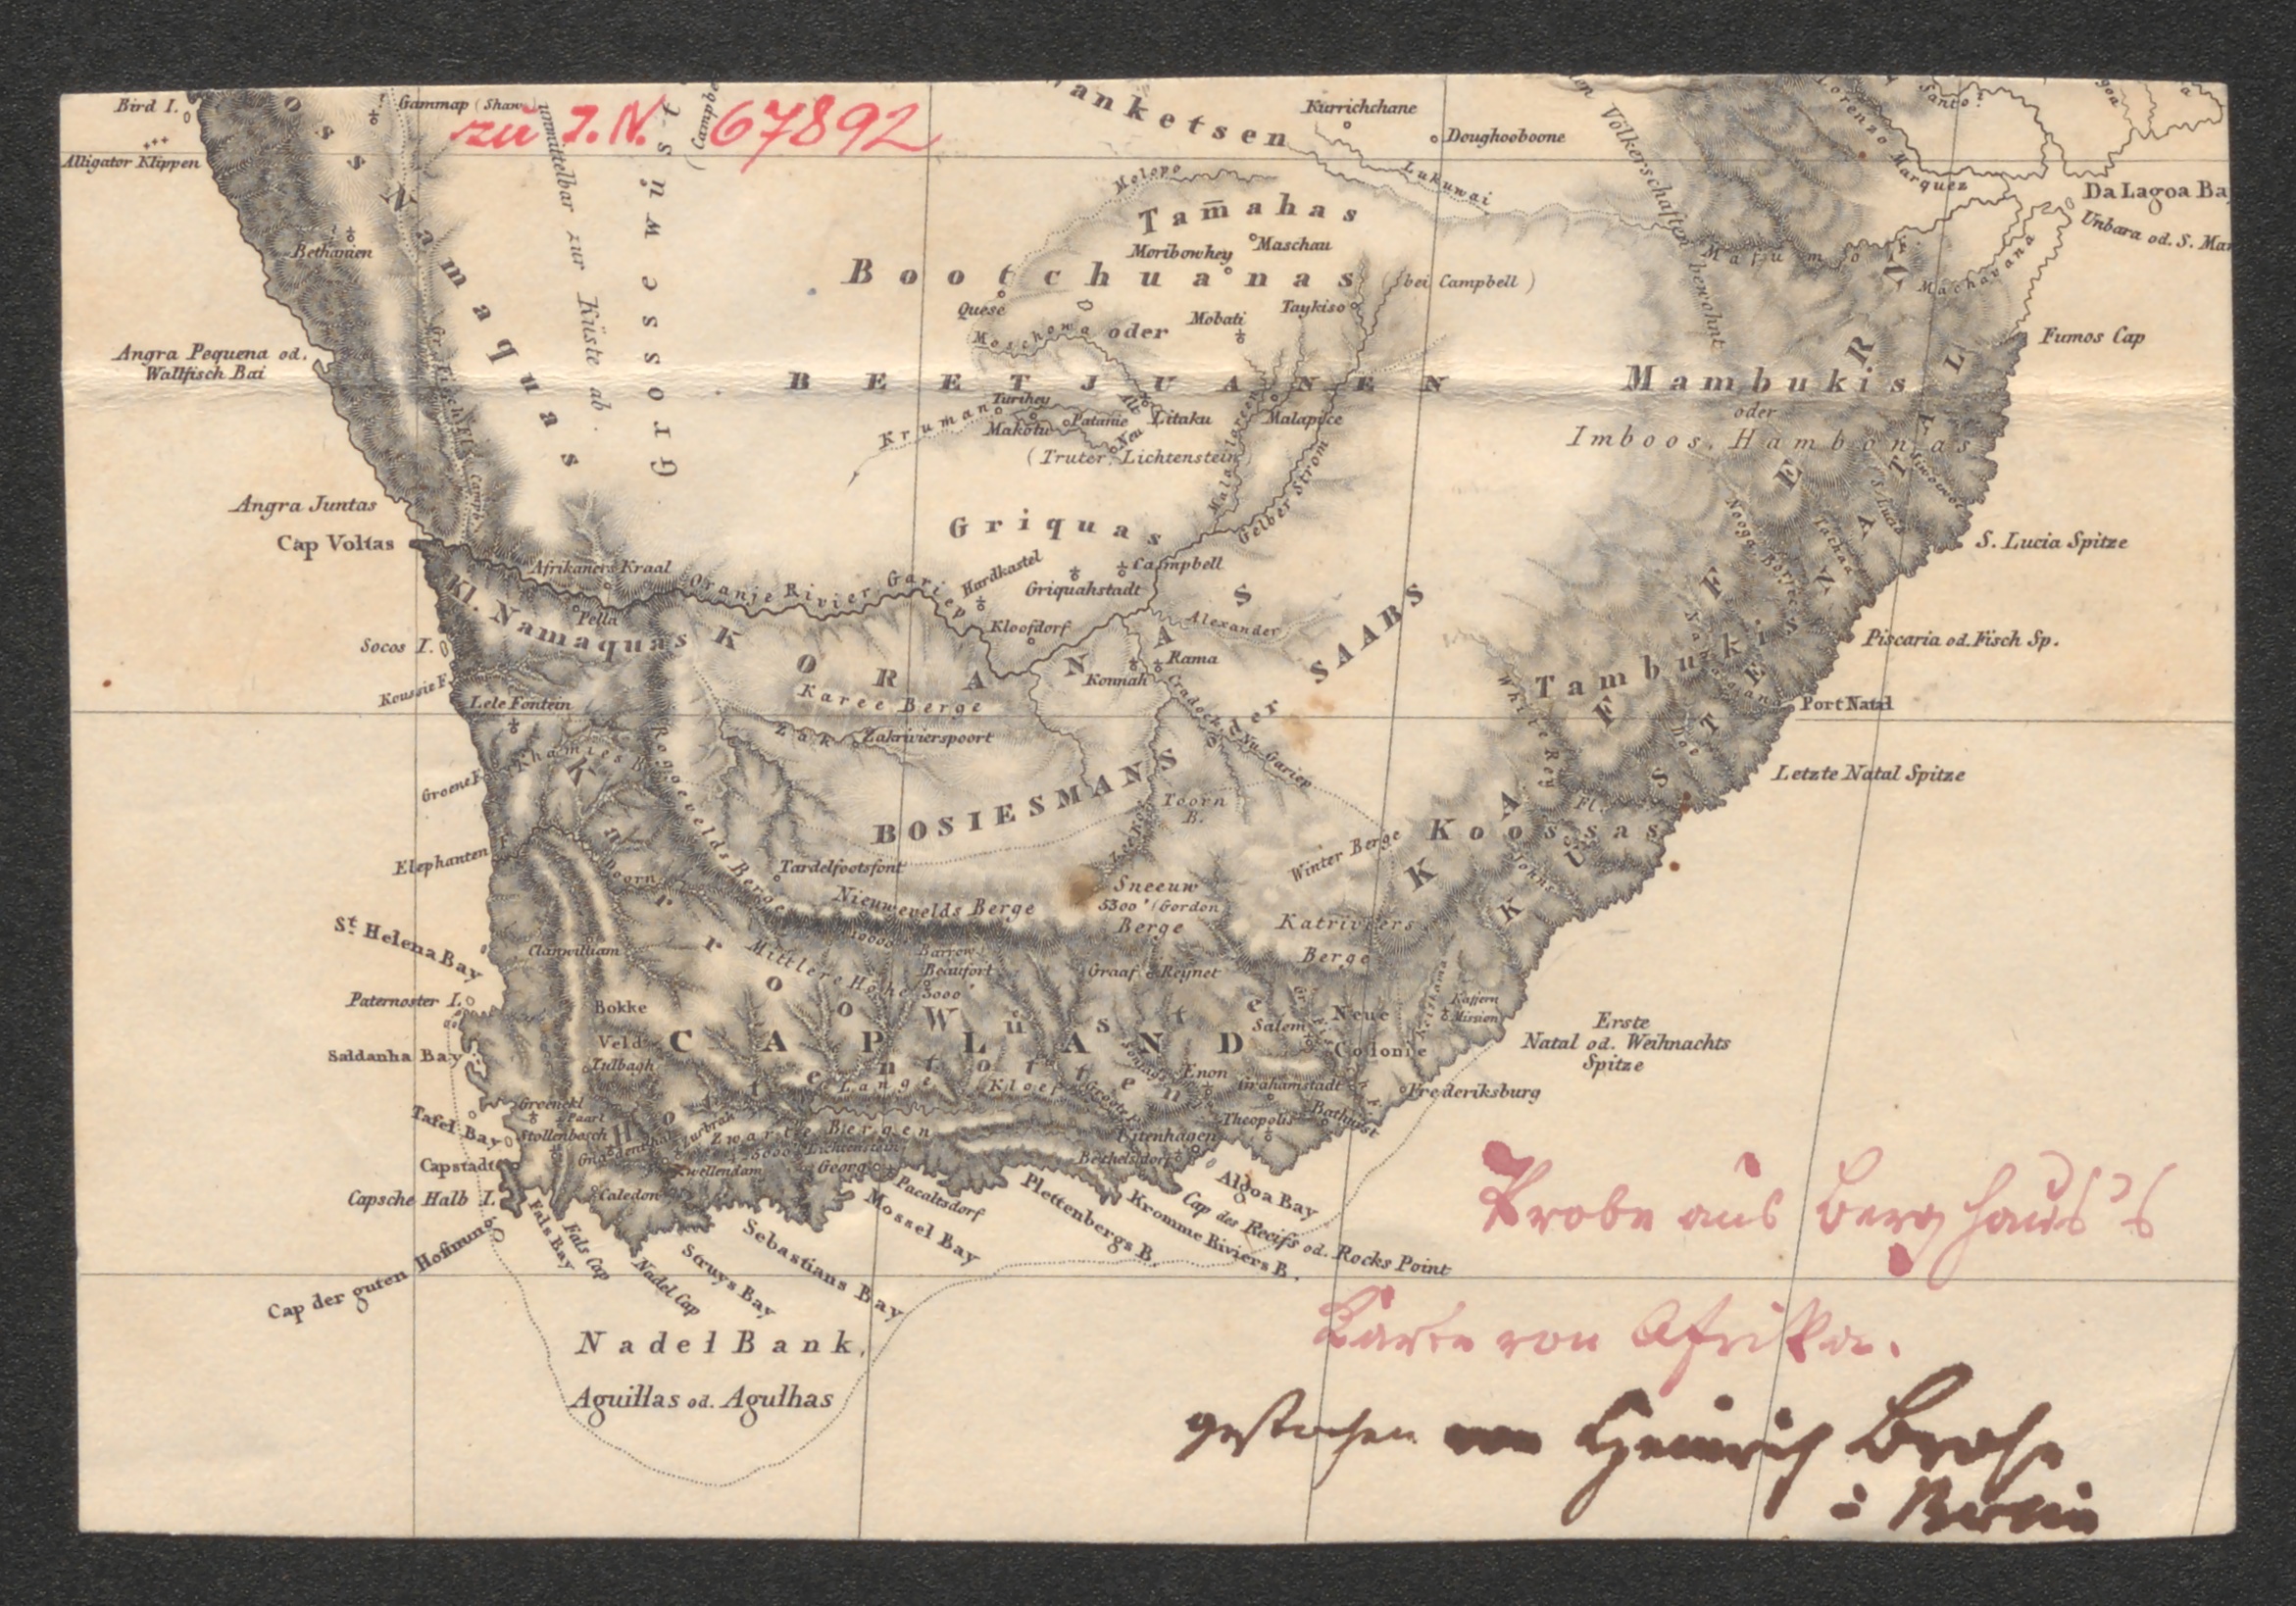 Bird I.
Gammap (Shaw)
zu I.N. 67892
Alligator Klippen
Wanketsen
Kurrichchane
Doughooboone
Lukuwai
Lorenzo Marquez
Da Lagoa Ba
Unbara od. S. Mar
Völkerschaften bewohnt
unmittelbar zur Küste ab.
Grosse Wüst
(Campbe
Gross Namaquas
Bethanien
Molopo
Tam̄ahas
Moribowhey
Maschau
Bootchuanas
(bei Campbell)
Quese
Moschowa
oder
Mobati
Taykiso
Mafumo
Machavana
Fumos Cap
Angra Pequena od.
Wallfisch Bai
BEETJUANEN
Mambukis
oder
Imboos, Hambonas
Turihey
Krumano
Makotu
Patanie
Alt
Neu
Litaku
Malapitce
(Truter, Lichtenstein)
Malalareen
Gelber Strom
Angra Juntas
Cap Voltas
Griquas
Campbell
Hardkastel
Griquahstadt
Afrikaners Kraal
Oranje Rivier Gariep
Pella
Kloofdorf
Alexander
S. Lucia Spitze
S. Lucia
Kl. Namaquas
KORANAS
Rama
Konnah
Karee Berge
Zak
Zakrivierspoort
Socos I.
Koussie F.
Lele Fontein
Piscaria od. Fisch Sp.
Tambukis
Port Natal
Letzte Natal Spitze
KÜSTE NATAL
KAFFERN
BOSIESMANS oder SAABS
Cradock
Nu Gariep
Groene F.
Khamies B.
Toorn
B.
Zeeko
Winter Berge
Koossas
Elephanten F.
Doorn
Roggevelds Berge
Tardelfootsfont
Nieuwevelds Berge
10000'
Barrow
Sneeuw
5300' (Gordon)
Berge
Katriviers
Berge
St. Helena Bay
Clanwilliam
Mittlere Höhe
3000'
Beaufort
Graaf Reynet
Paternoster I.
Karroo Wüste
Bokke
Veld
CAPLAND
Salem
Neue
Colonie
Keiskama
Kaffern
Mission
Erste
Natal od. Weihnachts
Spitze
Saldanha Bay
Tulbagh
Hottentotten
Lange Kloof
Enon
Grahamstadt
Frederiksburg
Groenekl
Paarl
Tafel Bay
Stollenbosch
Zurbrak
Zwarte Bergen
Lichtenstein
Theopolis
Bathurst
Uitenhagen
Bethelsdorf
Capstadt
Gnadenthal
Zwellendam
Georg
Capsche Halb I.
Caledon
Pacaltsdorf
Algoa Bay
Cap der guten Hoffnung
Fals Bay
Fals Cap
Nadel Cap
Struys Bay
Sebastians Bay
Mossel Bay
Plettenbergs B.
Kromme Riviers B.
Cap des Recifs od. Rocks Point
Nadel Bank,
Aguillas od. Agulhas
Probe aus Berghaus's
Karte von Afrika.
gestochen von Heinrich Brose
in Berlin